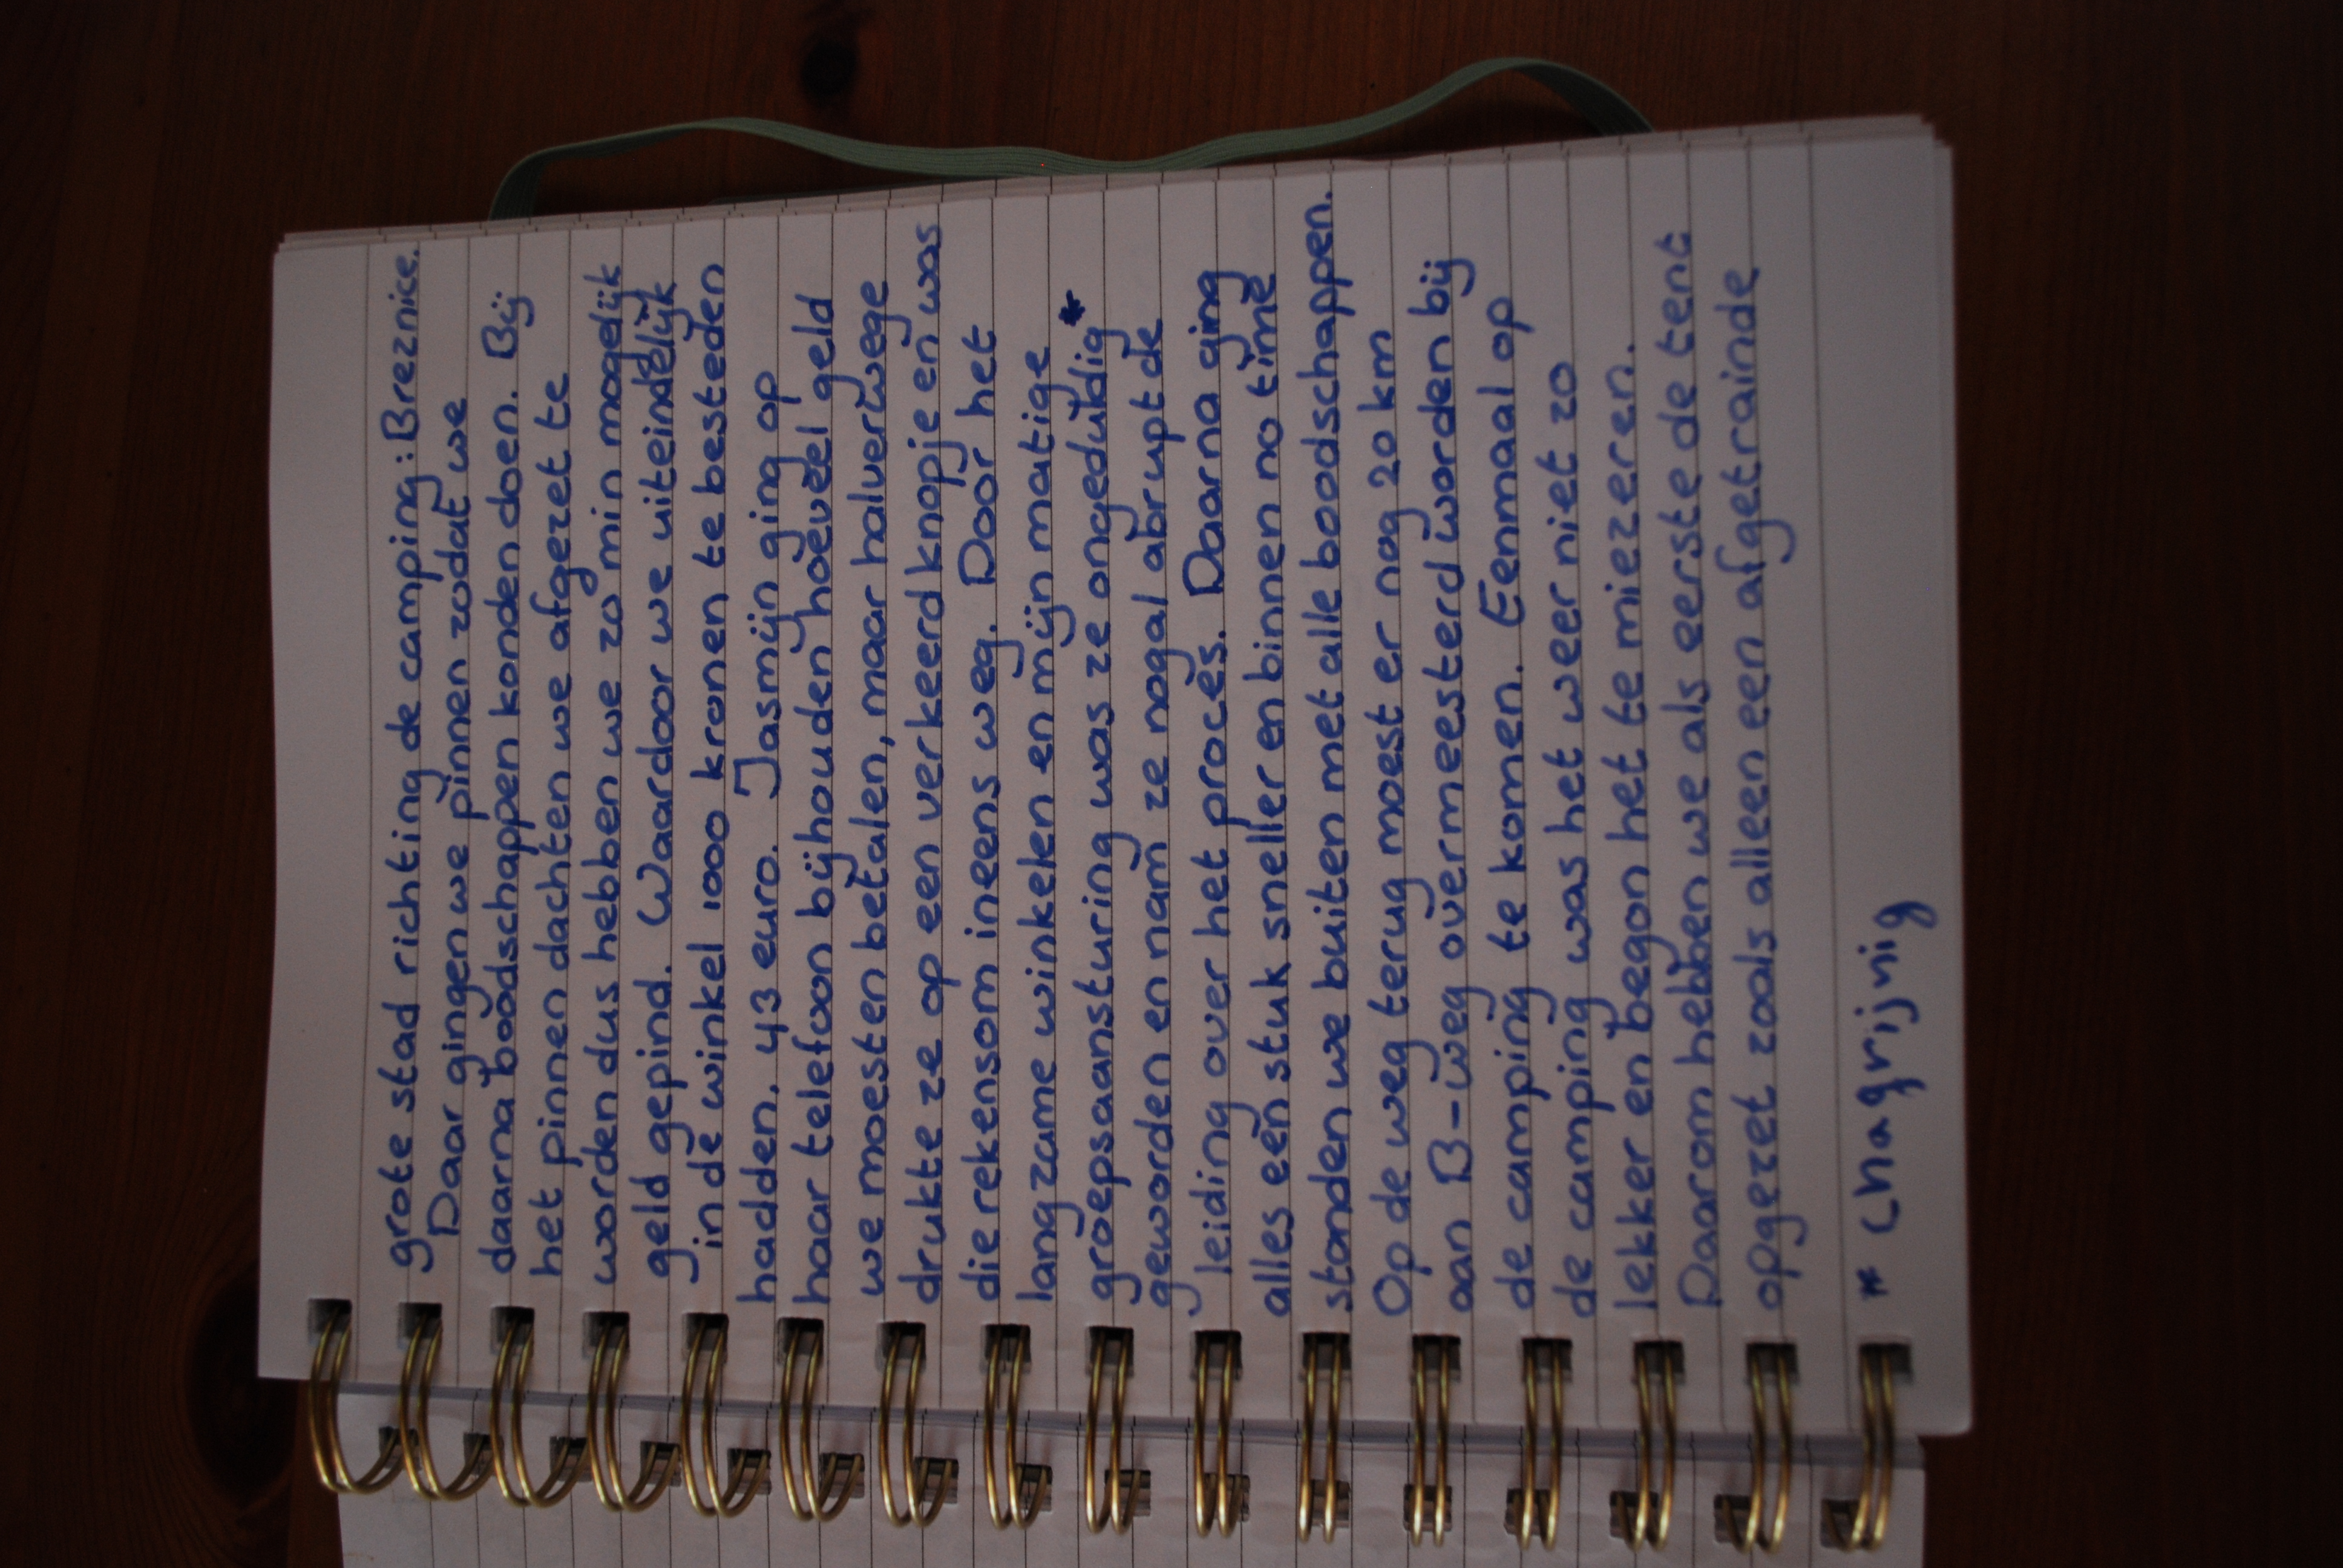 grote stad richting de camping: Breznice.
Daar gingen we pinnen zodat we
daarna boodschappen konden doen. Bij
het pinnen dachten we afgezet te
worden dus hebben we zo min mogelijk
geld gepind. Waardoor we uiteindelijk
in de winkel 1000 kronen te besteden
hadden, 43 euro. Jasmijn ging op
haar telefoon bijhouden hoeveel geld
we moesten betalen, maar halverwege
drukte ze op een verkeerd knopje en was
die rekensom ineens weg. Door het
langzame winkelen en mijn matige
groepsaansturing was ze ongeduldig *
geworden en nam ze nogal abrupt de
leiding over het proces. Daarna ging
alles een stuk sneller en binnen no time
stonden we buiten met alle boodschappen.
Op de weg terug moest er nog 20 km
aan B-weg overmeesterd worden bij
de camping te komen. Eenmaal op
de camping was het weer niet zo
lekker en begon het te miezeren.
Daarom hebben we als eerste de tent
opgezet zoals alleen een afgetrainde
* chagrijnig